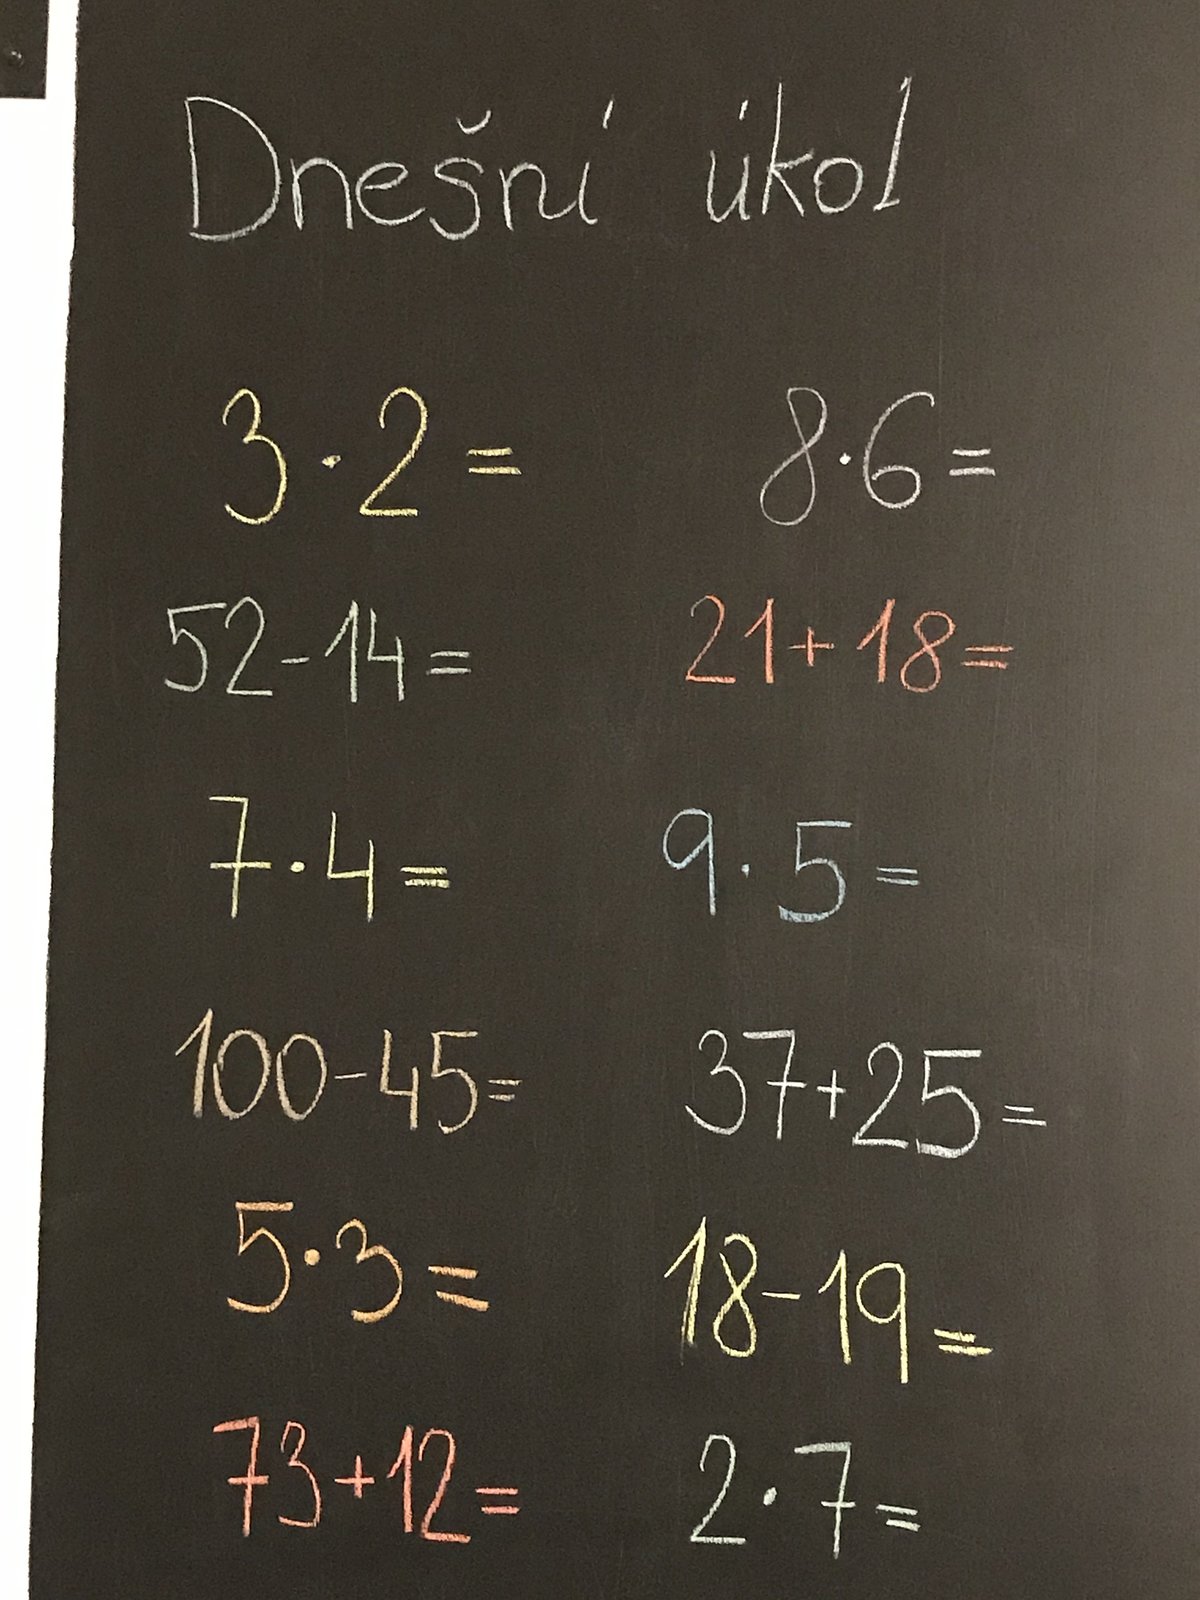 Dnešní úkol
3·2= 8·6=
52-14= 21+18=
7·4= 9·5=
100-45= 37+25=
5·3= 18-19=
73+12= 2·7=